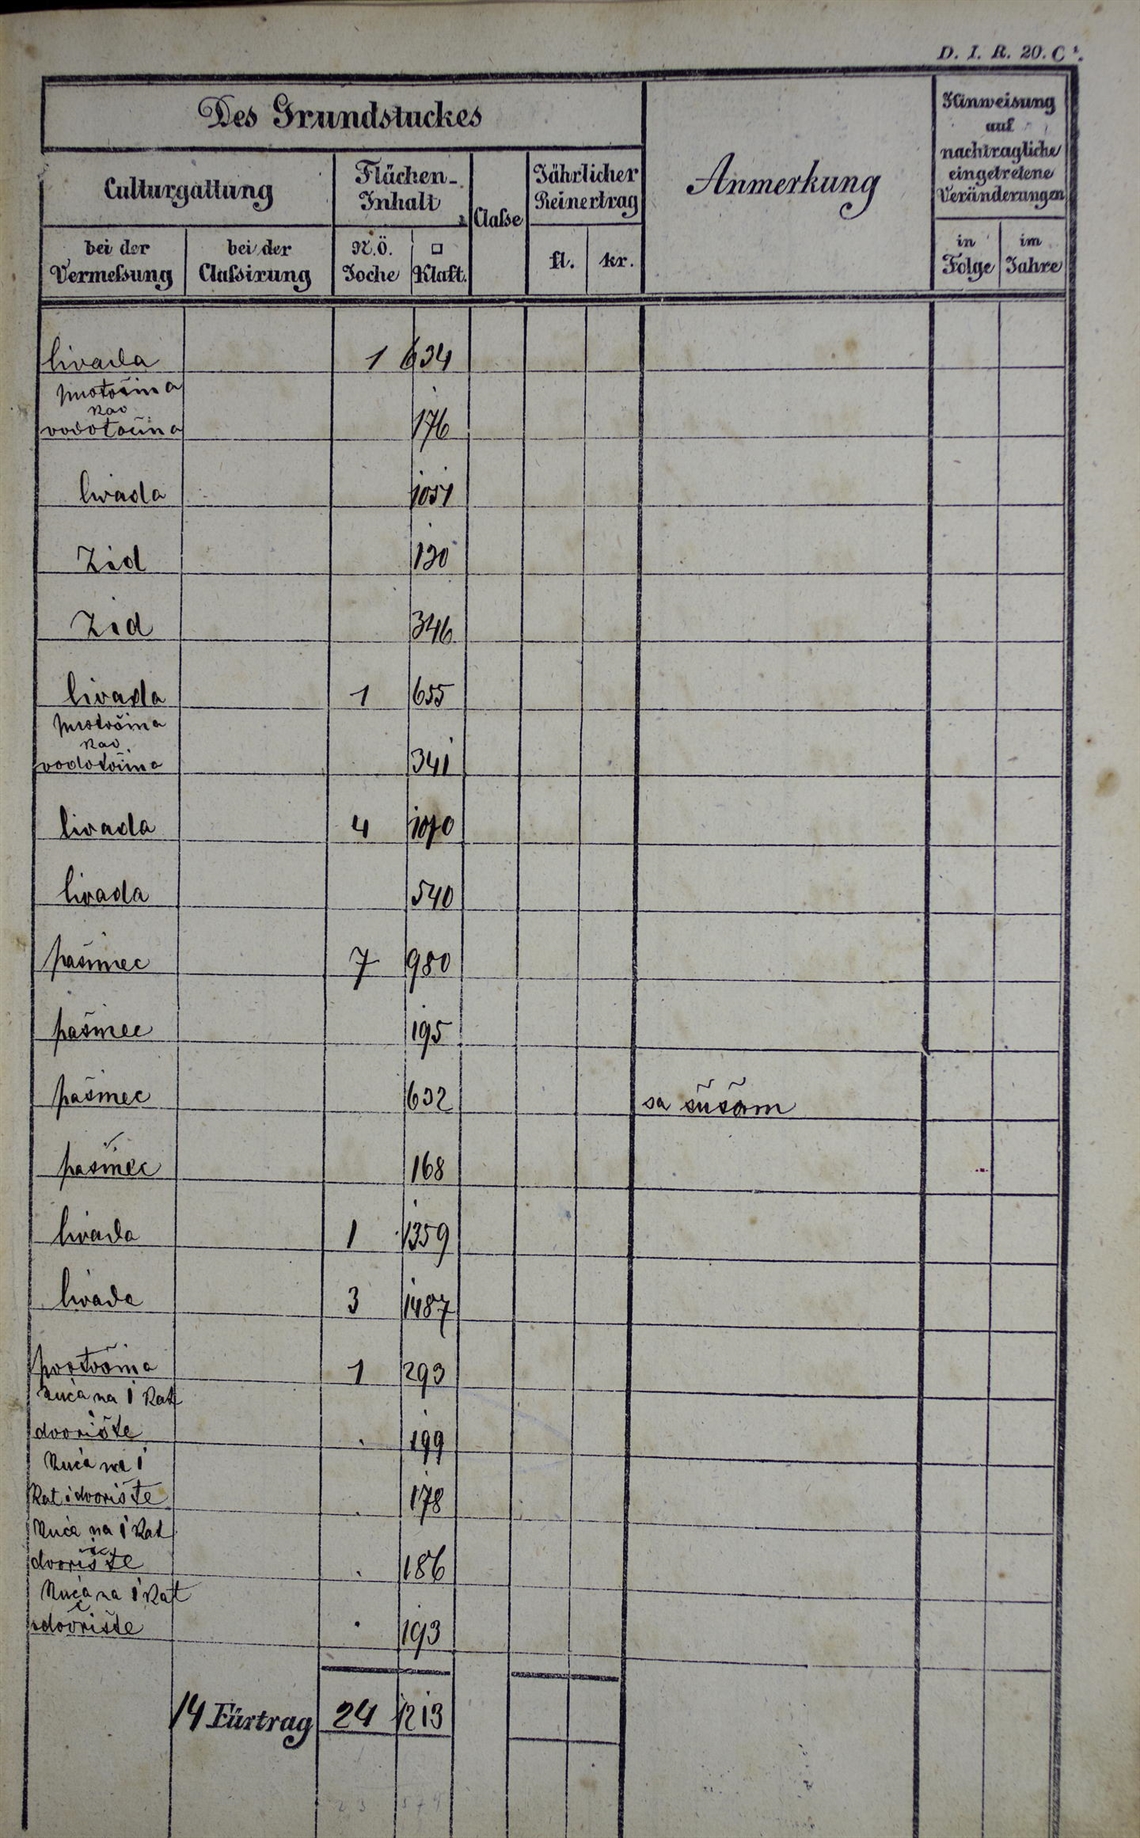 D. I. R. 20. C.
Des Grundstuckes
Culturgattung
Flächen-
Inhalt
Classe
Jährlicher
Reinertrag
Anmerkung
Hinweisung
auf
nachtragliche
eingetretene
Veränderungen
bei der
Vermessung
bei der
Classirung
N. Ö.
Joche
□
Klaft.
fl.
kr.
in
Folge
im
Jahre
livada 1 634
kao
vodotočina 176
livada 1051
Zid 130
Zid 346
livada 1 655
kao
vodotočina 341
livada 4 1070
livada 540
pašinec 7 980
pašinec 195
pašinec 632 sa
pašinec 168
livada 1 1359
livada 3 1487
1 293
Kuća na I kat
dvorište 199
Kuća na I
kat i dvorište 178
Kuća na I kat
dvorište 186
Kuća na I kat
i dvorište 193
14 Fürtrag 24 1213